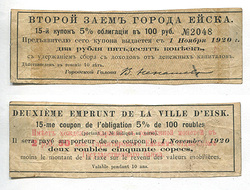 ВТОРОЙ ЗАЕМ ГОРОДА ЕЙСКА.
15-й купон 5% облигации в 100 руб. №2048
Предъявителю сего купона выдается с 1 Ноября 1920 г.
два рубля пятьдесят копеек,
с удержанием сбора с доходов от денежных капиталов.
Городской Голова
DEUXIÈME EMPRUNT DE LA VILLE D'EISK.
15-me coupon de l'obligation 5% de 100 roubles
Il sera payé au porteur de ce coupon, le 1 Novembre 1920
deux roubles cinquante copecs,
moins le montant de la taxe sur le revenu des valeurs mobilières.
Valable pendant 10 ans.